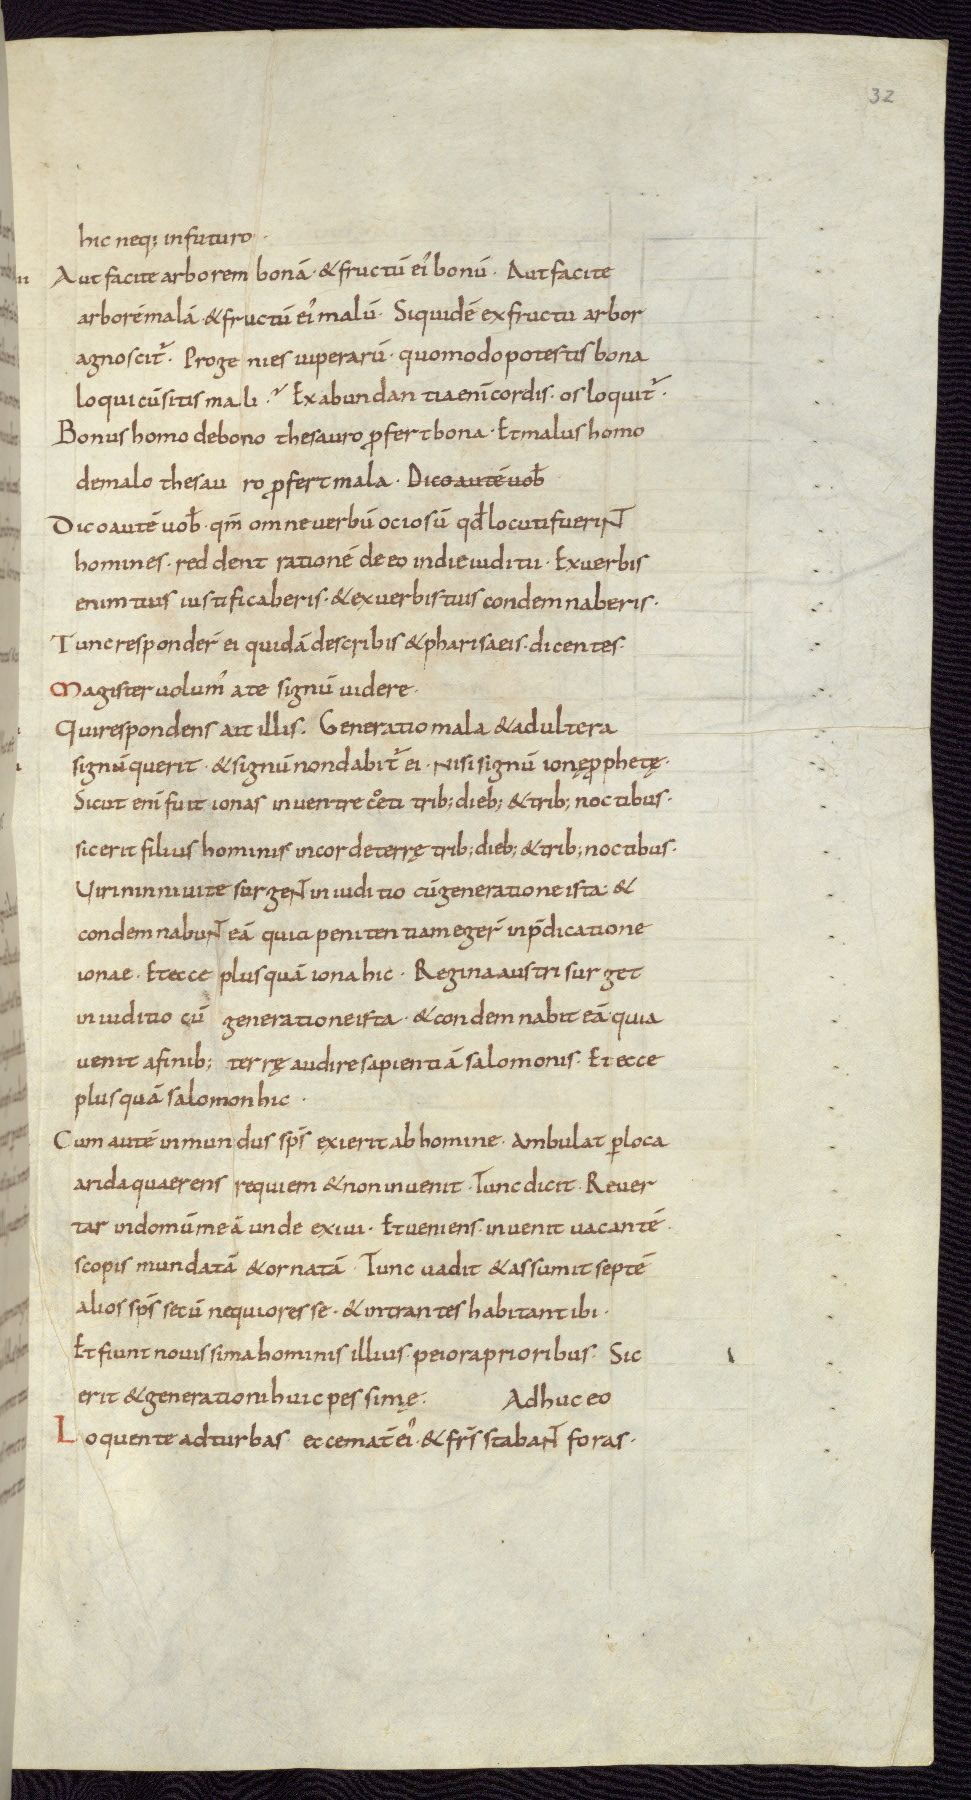 32
hic neq; infuturo ·
Aut facite arborem bonā · & fructū ei' bonū · Aut facite
arborē malā · & fructū ei' malū · Siquidē ex fructu arbor
agnoscit᷑ · Proge nies uiperarū · quomodo potestis bona
loqui cū sitis mali · Ex abundan tia eni cordis · os loquit᷑ ·
Bonus homo de bono thesauro ꝓfert bona · Et malus homo
de malo thesau ro ꝓfert mala · Dico autē uob̄
Dico autē uob̄ · qm̄ omne uerbū ociosū qd̄ locuti fuerint
homines · reddent rationē de eo in die iuditii · Ex uerbis
enim tuis iustificaberis · & ex uerbis tuis condemnaberis ·
Tunc responder̄ ei quidā de scribis & pharisaeis · dicentes ·
Magister uolum' a te signū uidere ·
Qui respondens ait illis · Generatio mala & adultera
signū querit · & signū non dabit᷑ ei · nisi signū ionę ꝓphetę ·
Sicut eni fuit ionas in uentre coeti trib; dieb; & trib; noctibus ·
sic erit filius hominis in corde terrę trib; dieb; & trib; noctibus ·
Uiri niniuite surgent in iuditio cū generatione ista · &
condemnabunt eā quia penitentiam eger̄ in p̄dicatione
ionae · Et ecce plus quā iona hic · Regina austri surget
in iuditio cū generatione ista · & condemnabit eā quia
uenit a finib; terrę audire sapientiā salomonis · Et ecce
plus quā salomon hic ·
Cum autē inmundus sp̄s exierit ab homine · Ambulat ꝑ loca
arida quaerens requiem & non inuenit · Tunc dicit · Reuer
tar in domū meā unde exiui · Et ueniens · inuenit uacantē ·
scopis mundatā & ornatā · Tunc uadit & assumit septē
alios sp̄s secū nequiores se · & intrantes habitant ibi ·
Et fiunt nouissima hominis illius · peiora prioribus · Sic
erit & generationi huic pessimę · Adhuc eo
Loquente ad turbas ecce mat̄ ei' · & fr̄s stabant foras ·